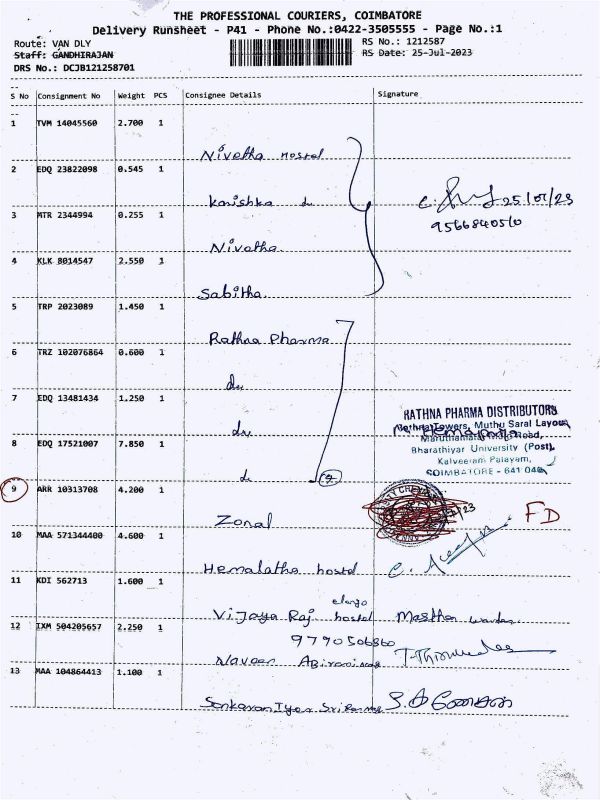 THE PROFESSIONAL COURIERS, COIMBATORE
Delivery Runsheet - P41 - Phone No.:0422-3505555 - Page No.:1
Route: VAN DLY
RS No.: 1212587
Staff: GANDHIRAJAN
RS Date: 25-Jul-2023
DRS No.: DCJB121258701
S No Consignment No Weight PCS Consignee Details Signature
1 TVM 14045560 2.700 1
Nivetha Hostel
2 EDQ 23822098 0.545 1
Kanishka
25/07/23
3 MTR 2344994 0.255 1
9566840510
Nivetha
4 KLK 8014547 2.550 1
Sabitha
5 TRP 2023089 1.450 1
Rathna Pharma
6 TRZ 102076864 0.600 1
do
7 EDQ 13481434 1.250 1
do
RATHNA PHARMA DISTRIBUTORS
Rathna Towers, Muthu Saral Layout,
Road,
8 EDQ 17521007 7.850 1
Bharathiyar University (Post),
Kalveeram Palayam,
COIMBATORE - 641 046
do
9 ARR 10313708 4.200 1
Zonal
FD
10 MAA 571344400 4.600 1
Hemalatha hostel
11 KDI 562713 1.600 1
Vijaya Raj hostel
12 IXM 504205657 2.250 1
9790506860
Naveen
13 MAA 104864413 1.100 1